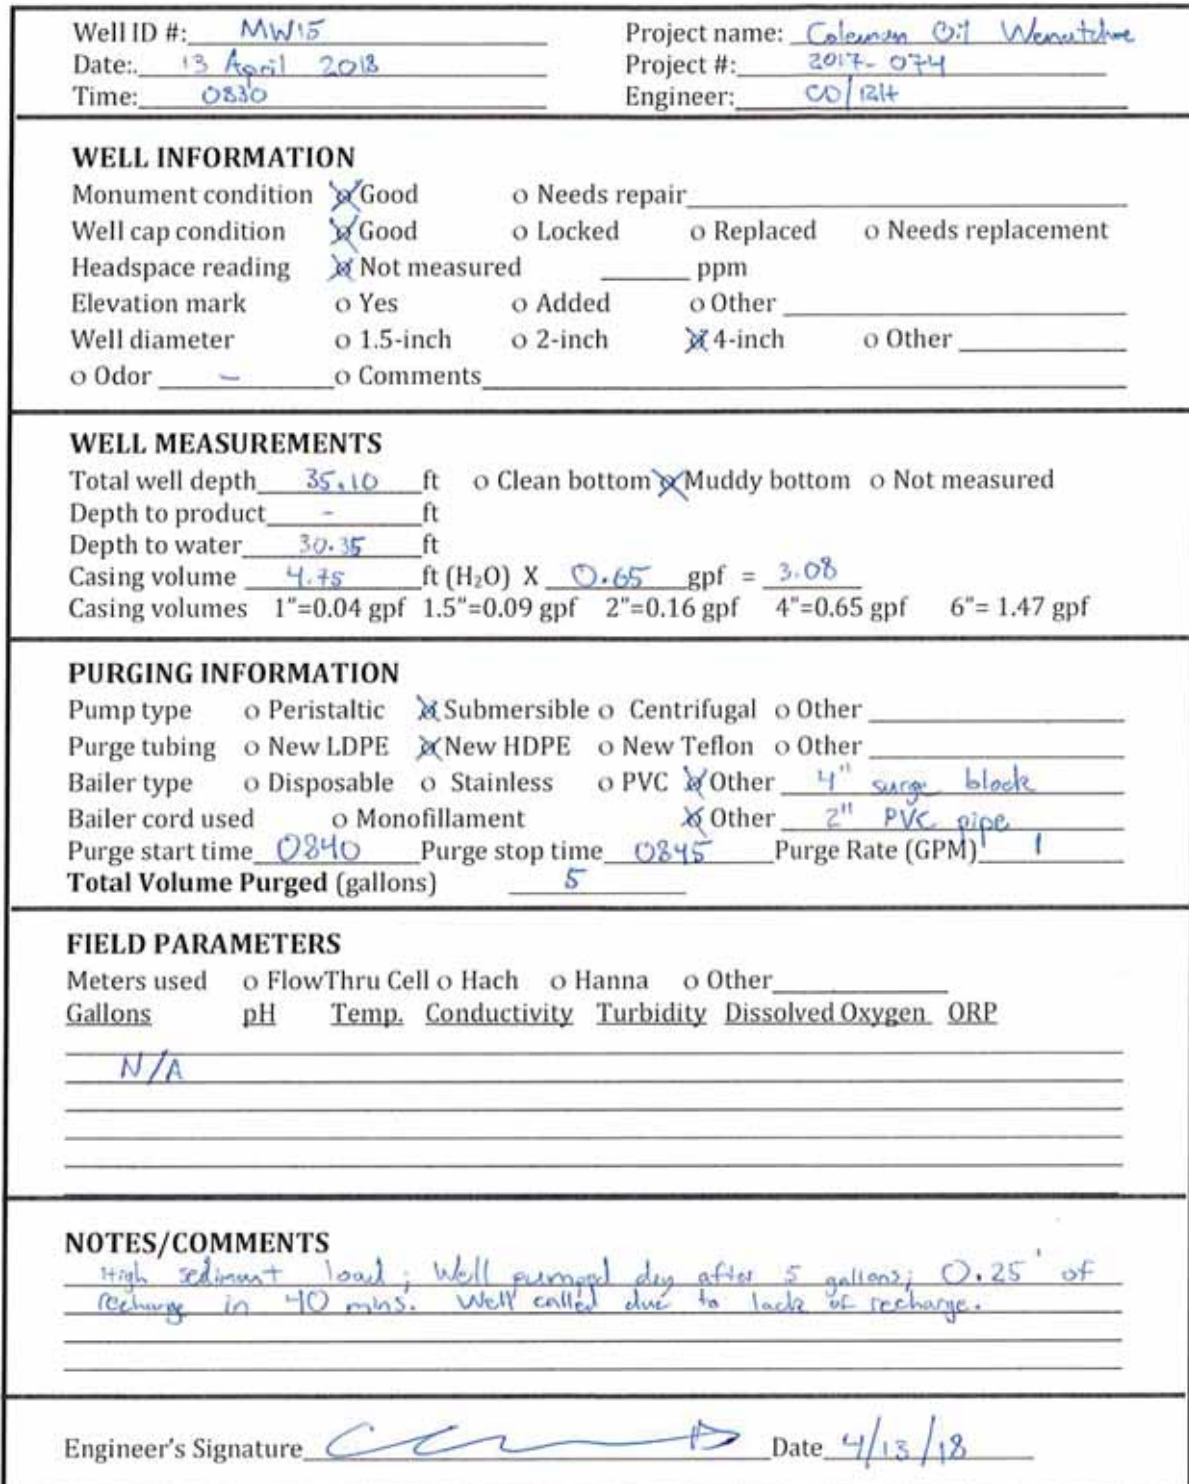 Well ID #: MW15 Project name: Coleman Oil Wenatchee
Date:. 13 April 2018 Project #: 2017-074
Time: 0830 Engineer: CO/BH
WELL INFORMATION
Monument condition Good o Needs repair
Well cap condition Good o Locked o Replaced o Needs replacement
Headspace reading Not measured ppm
Elevation mark o Yes o Added o Other
Well diameter o 1.5-inch o 2-inch 4-inch o Other
o Odor - o Comments
WELL MEASUREMENTS
Total well depth 35.10 ft o Clean bottom Muddy bottom o Not measured
Depth to product - ft
Depth to water 30.35 ft
Casing volume 4.75 ft (H₂O) X 0.65 gpf = 3.08
Casing volumes 1"=0.04 gpf 1.5"=0.09 gpf 2"=0.16 gpf 4"=0.65 gpf 6"= 1.47 gpf
PURGING INFORMATION
Pump type o Peristaltic Submersible o Centrifugal o Other
Purge tubing o New LDPE New HDPE o New Teflon o Other
Bailer type o Disposable o Stainless o PVC Other 4" surge block
Bailer cord used o Monofillament Other 2" PVC pipe
Purge start time 0840 Purge stop time 0845 Purge Rate (GPM) 1
Total Volume Purged (gallons) 5
FIELD PARAMETERS
Meters used o FlowThru Cell o Hach o Hanna o Other
Gallons pH Temp. Conductivity Turbidity Dissolved Oxygen ORP
N/A
NOTES/COMMENTS
High sediment load; Well pumped dry after 5 gallons; 0.25' of
recharge in 40 mins. Well called due to lack of recharge.
Engineer's Signature Date 4/13/18